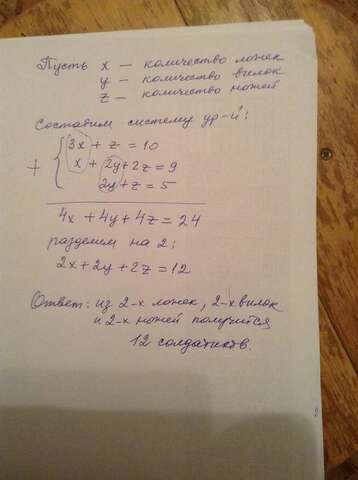 Пусть x — количество ложек
y — количество вилок
z — количество ножей
Составим систему ур-й:
3x + z = 10
+ { x + 2y + 2z = 9
2y + z = 5
4x + 4y + 4z = 24
разделим на 2:
2x + 2y + 2z = 12
Ответ: из 2-х ложек, 2-х вилок
и 2-х ножей получится
12 солдатиков.